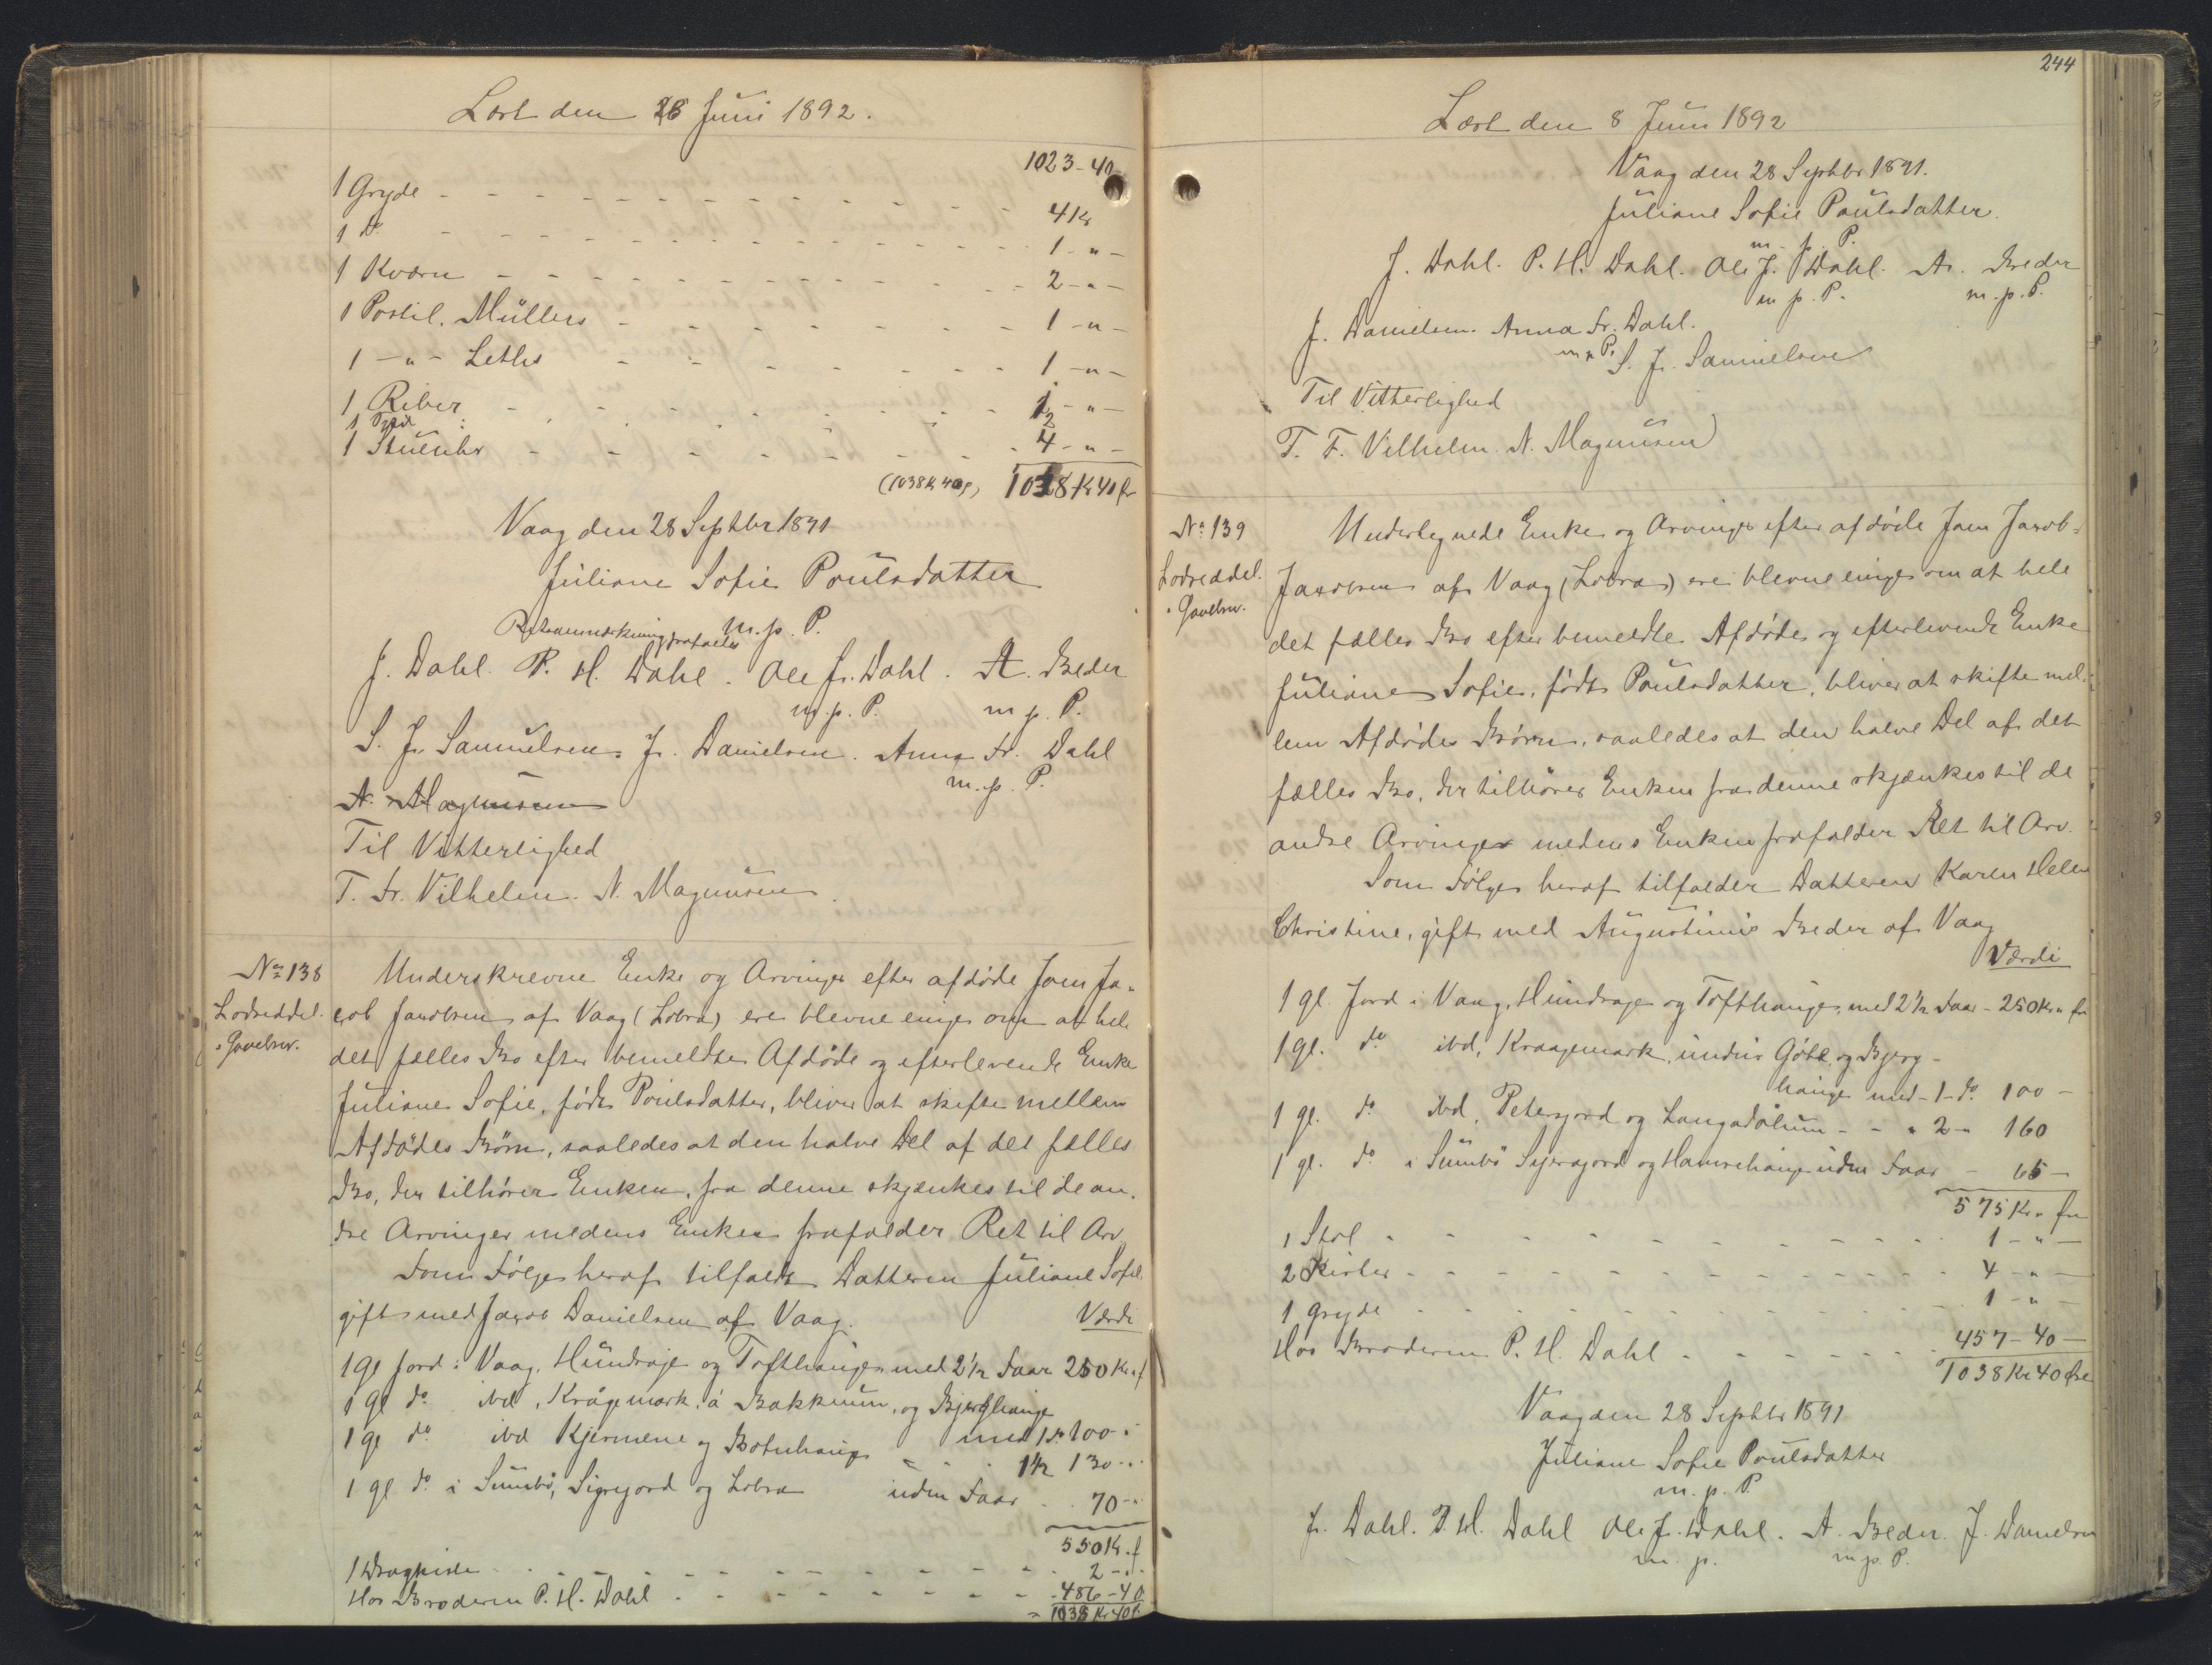 Læst den 8 Juni 1892.
1023-40
1 Gryde - - - 4 Kr
1 do - - - 1 - " -
1 Kværn - - - 2 - " -
1 Postil. Müllers - - - 1 - " -
1 - " - Leths - - - 1 - " -
1 Riber - - - 1 - " -
1 2
1 Stueuhr - - - 4 - " -
(1038 Kr 40 ø) 1038 Kr 40 ør
Vaag den 28 Septbr 1891
Juliane Sofie Poulsdatter
m. p. P.
J. Dahl. P. H. Dahl. Ole J. Dahl. A. Beder
m. p. P. m. p. P.
S. Fr. Samuelsen. J. Danielsen. Anna Fr. Dahl
m. p. P.
N. Magnusen
Til Vitterlighed
T. Fr. Vilhelm. N. Magnusen.
No 138
Lodseddel
& Gavebrev.
Underskrevne Enke og Arvinger efter afdøde Joen Ja-
cob Jacobsen af Vaag (Lobra) ere blevne enige om at hele
det fælles Bo efter bemeldte Afdøde og efterlevende Enke
Juliane Sofie, født Poulsdatter, bliver at skifte mellem
Afdødes Børn, saaledes at den halve Del af det fælles
Bo, der tilhører Enken, fra denne skjænkes til de an-
dre Arvinger medens Enken frafalder Ret til Arv.
Som Følge heraf tilfaldt Datteren Juliane Sofie
gift med Jacob Danielsen af Vaag.
Værdi
1 Gl Jord i Vaag, Hundraje og Tofthauge, med 2½ Faar 250 Kr " f
1 gl do ibd, Krágemark, á Bakkum, og Bjerghauge
med 1 do 100 - "
1 gl do ibd Kjermene og Botnhauge - - 1½ 130 - "
1 gl do i Sumbø, Sigrejord og Lobra uden Faar - 70 - "
550 Kr. f
1 Dragkiste - - - 2 - " -
Hos Broderen P. H. Dahl - - - 486 - 40
1038 Kr 40 f.
244
Læst den 8 Juni 1892
Vaag den 28 Septbr 1891.
Juliane Sofie Poulsdatter.
m. p. P.
J. Dahl. P. H. Dahl. Ole J. Dahl. A. Beder
m. p. P. m. p. P.
J. Danielsen. Anna Fr. Dahl.
m. p. P. S. Fr. Samuelsen
Til Vitterlighed
T. F. Vilhelm. N. Magnusen
No 139
Lodseddel.
& Gavebrev.
Undertegnede Enke og Arvinger efter afdøde Joen Jacob
Jacobsen af Vaag (Lobra) ere blevne enige om at hele
det fælles Bo efter bemeldte Afdøde og efterlevende Enke
Juliane Sofie, født Poulsdatter, bliver at skifte mel-
lem Afdødes Børn, saaledes at den halve Del af det
fælles Bo, der tilhører Enken fra denne skjænkes til de
andre Arvinger medens Enken frafalder Ret til Arv.
Som Følge heraf tilfalder Datteren Karen Helene
Christine, gift med Augustinus Beder af Vaag
Værdi
1 gl. Jord i Vaag, Hundraje og Tofthauge, med 2½ Faar - 250 Kr " ør
1 gl. do ibd, Kraagemark, undir Gøtu, og Bjerg-
hauge med - 1 - do 100 -
1 gl. do ibd, Petersjord og Langadölum - - " 2 - " 160
1 gl. do i Sumbø Sjerajord og Hamrehauge uden Faar - 65 -
575 Kr " ør
1 Stol - - - 1 - " -
2 Kister - - - 4 - " -
1 Gryde - - - 1 - " -
Hos Broderen P. H. Dahl - - - 457 - 40 -
1038 Kr 40 Øre
Vaag den 28 Septbr 1891
Juliane Sofie Poulsdatter
m. p. P.
J. Dahl. P. H. Dahl Ole J. Dahl. A. Beder. J. Danielsen
m. p. m. p. P.